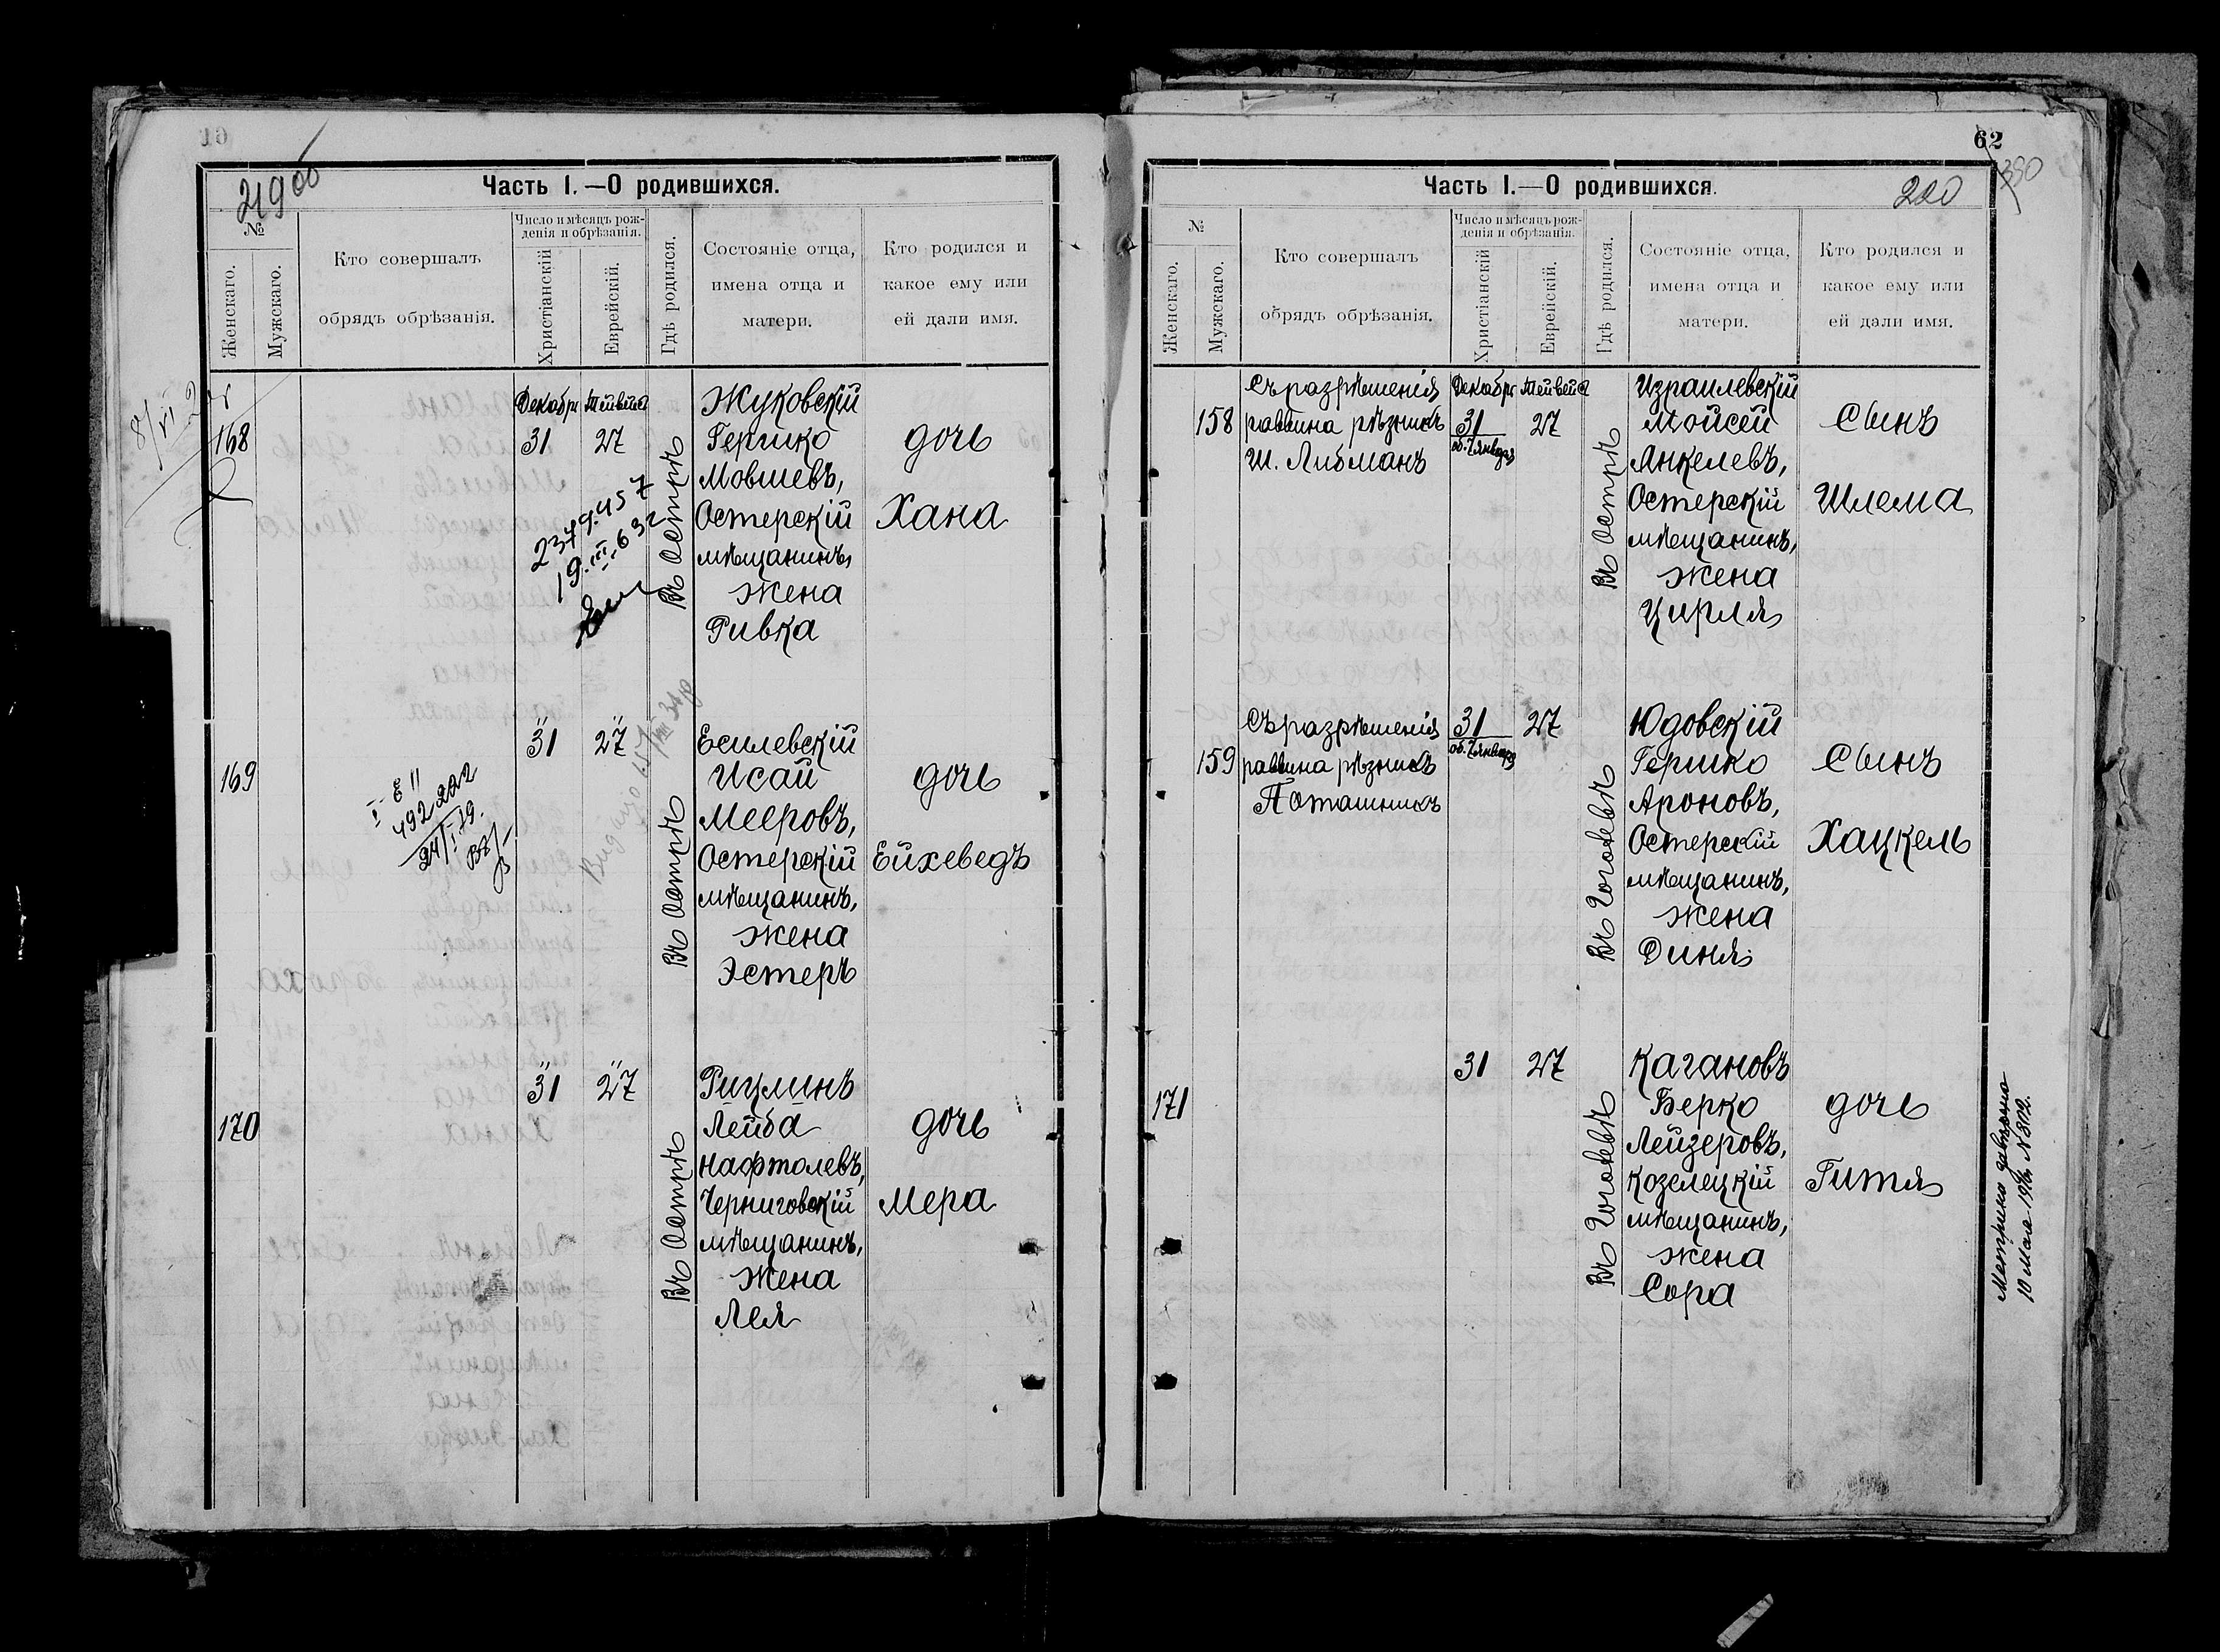 219 об
Часть I.—О родившихся.
№
Женскаго.
Мужскаго.
Кто совершалъ
обрядъ обрѣзанія.
Число и мѣсяцъ рож-
денія и обрѣзанія.
Христіанскій
Еврейскій.
Гдѣ родился.
Состояніе отца,
имена отца и
матери.
Кто родился и
какое ему или
ей дали имя.
168
Декабр
31
Тейвейса
27
Въ Острѣ
Жуковскій
Гершко
Мовшевъ,
Остерскій
мѣщанинъ,
жена
Ривка
дочь
Хана
2379.457
19.III.632
169
I-Е II
492222
24/I.29.
31
27
Въ Острѣ
Есилевскій
Исай
Мееровъ,
Остерскій
мѣщанинъ,
жена
Эстеръ
дочь
Ейхеведъ
170
31
27
Въ Острѣ
Рицлинъ
Лейба
Нафтолевъ,
Черниговскій
мѣщанинъ,
жена
Лея
дочь
Мера
62
390
220
Часть I.—О родившихся.
№
Женскаго.
Мужскаго.
Кто совершалъ
обрядъ обрѣзанія.
Число и мѣсяцъ рож-
денія и обрѣзанія.
Христіанскій
Еврейскій.
Гдѣ родился.
Состояніе отца,
имена отца и
матери.
Кто родился и
какое ему или
ей дали имя.
158
Съ разрѣшенія
раввина рѣзникъ
Ш. Либманъ
Декабр
31
об. 7 января
Тейвейса
27
Въ Острѣ
Израилевскій
Мойсей
Янкелевъ,
Остерскій
мѣщанинъ,
жена
Цирля
Сынъ
Шлема
159
Съ разрѣшенія
раввина рѣзникъ
Поташникъ
31
об. 7 января
27
Въ Гоголевѣ
Юдовскій
Гершко
Ароновъ,
Остерскій
мѣщанинъ,
жена
Диня
Сынъ
Хацкель
171
31
27
Въ Гоголевѣ
Кагановъ
Берко
Лейзеровъ,
Козелецкій
мѣщанинъ,
жена
Сора
дочь
Гитя